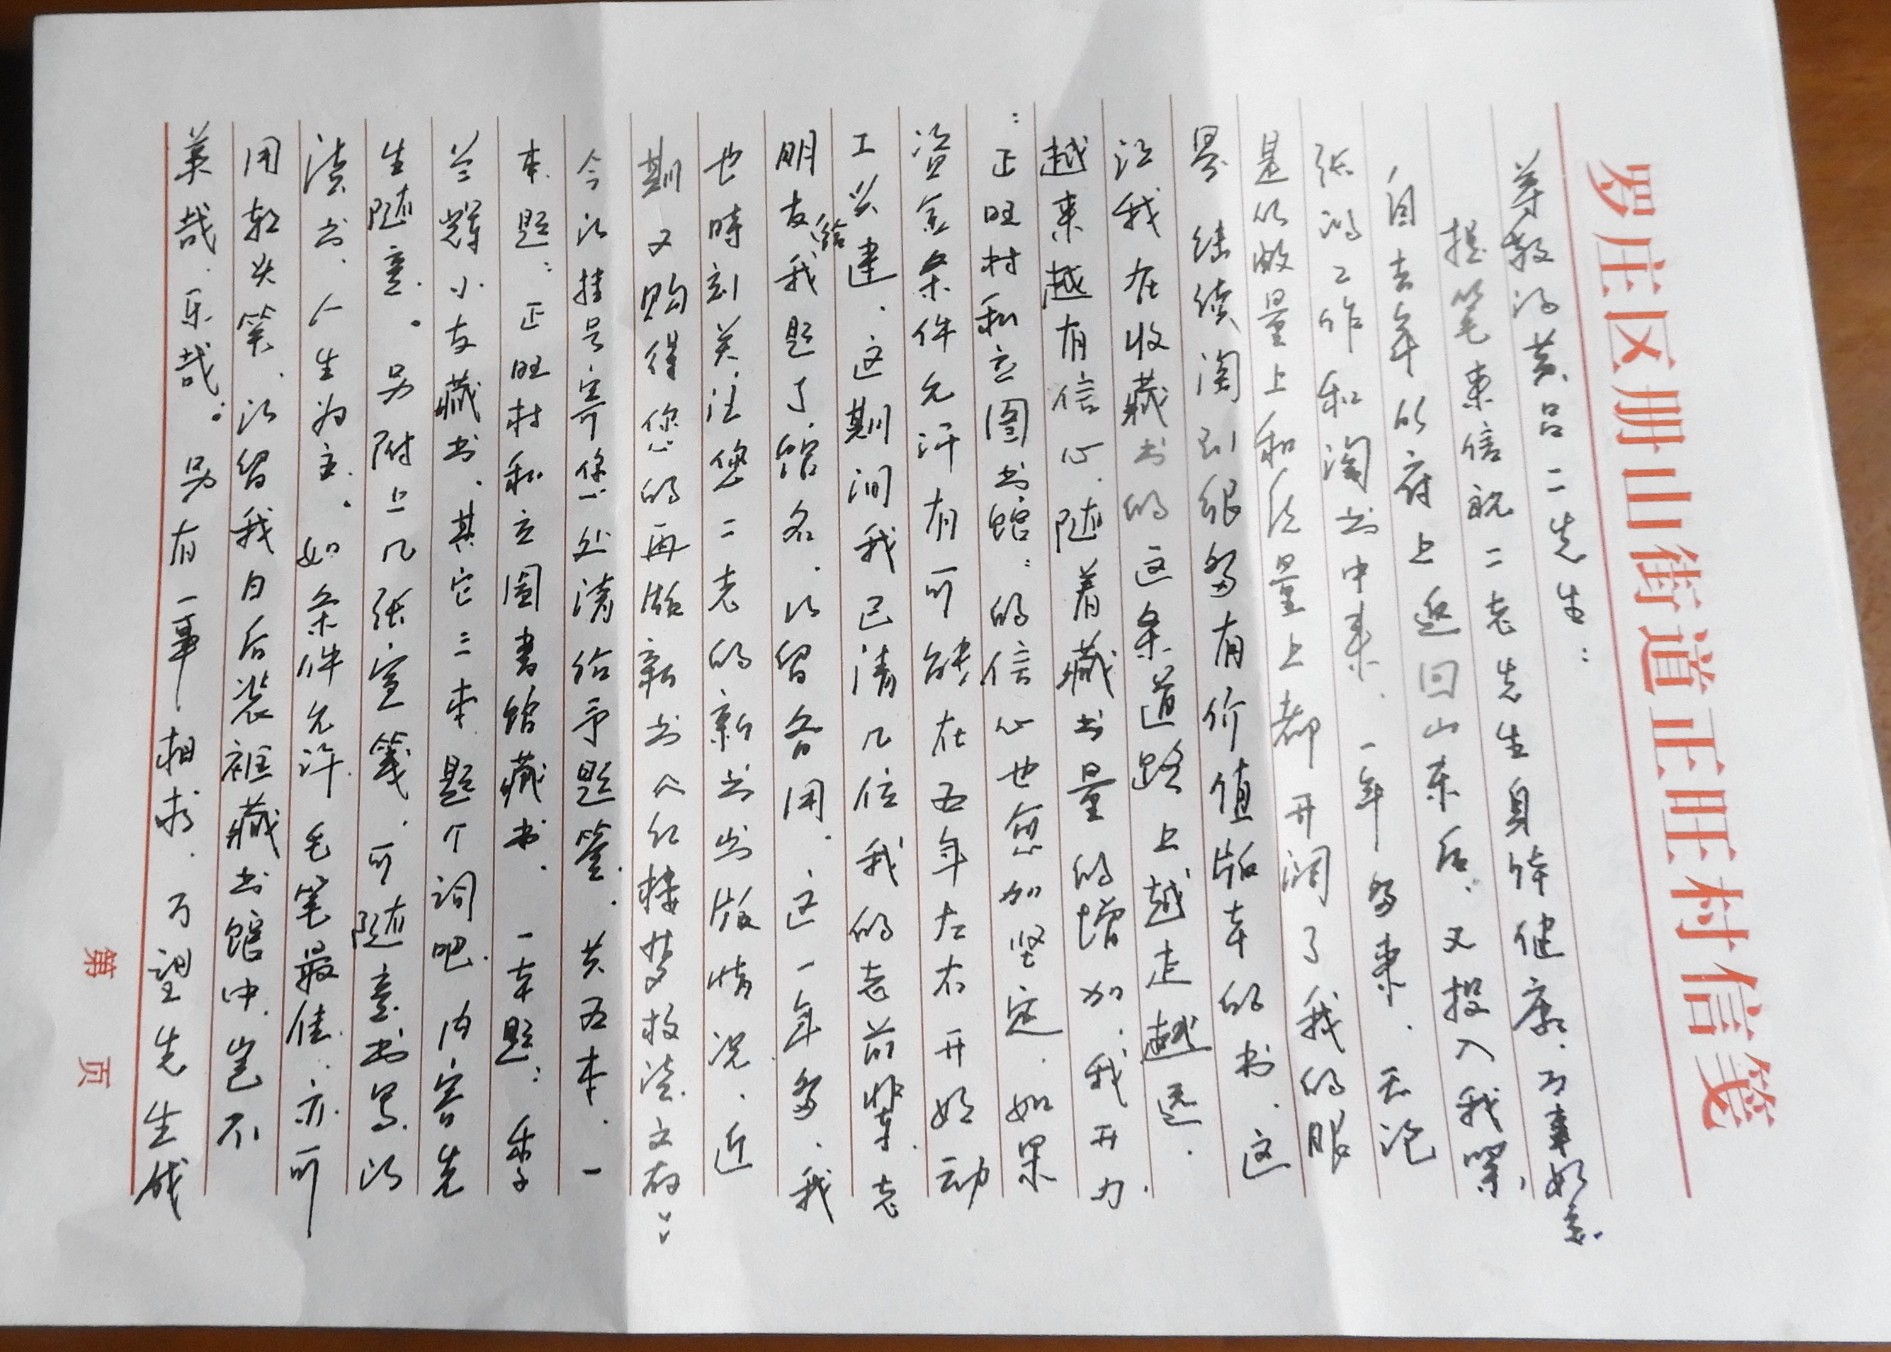 罗庄区册山街道正旺村信笺
尊敬的黄吕二先生：
提笔来信祝二老先生身体健康，万事如意。
自去年的府上返回山东后，又投入我紧
张的工作和淘书中来，一年多来，无论
是从数量上和质量上都开阔了我的眼
界，继续淘到很多有价值版本的书，这
让我在收藏书的这条道路上越走越远，
越来越有信心，随着藏书量的增加，我开力
：正旺村和立图书馆：的信心也愈加坚定，如果
资金条件允许有可能在五年左右开始动
工兴建，这期间我已请几位我的老前辈，老
朋友给我题了馆名，以留备用，这一年多，我
也時刻关注您二老的新书出版情况，近
期又购得您的再版新书《红楼梦校读文存》
今以挂号寄您处请给予题签，共五本，一
本题：正旺村和立图書馆藏书，一本题：季
兰辉小友藏书，其它三本题个词吧，内容先
生随意。另附上几张宣笺，可随意书写，以
读书，人生为主。如条件允许，毛笔最佳，亦可
用软头笔，以留我日后装裱藏书馆中，岂不
美哉，乐哉。另有一事相求，万望先生成
第 页